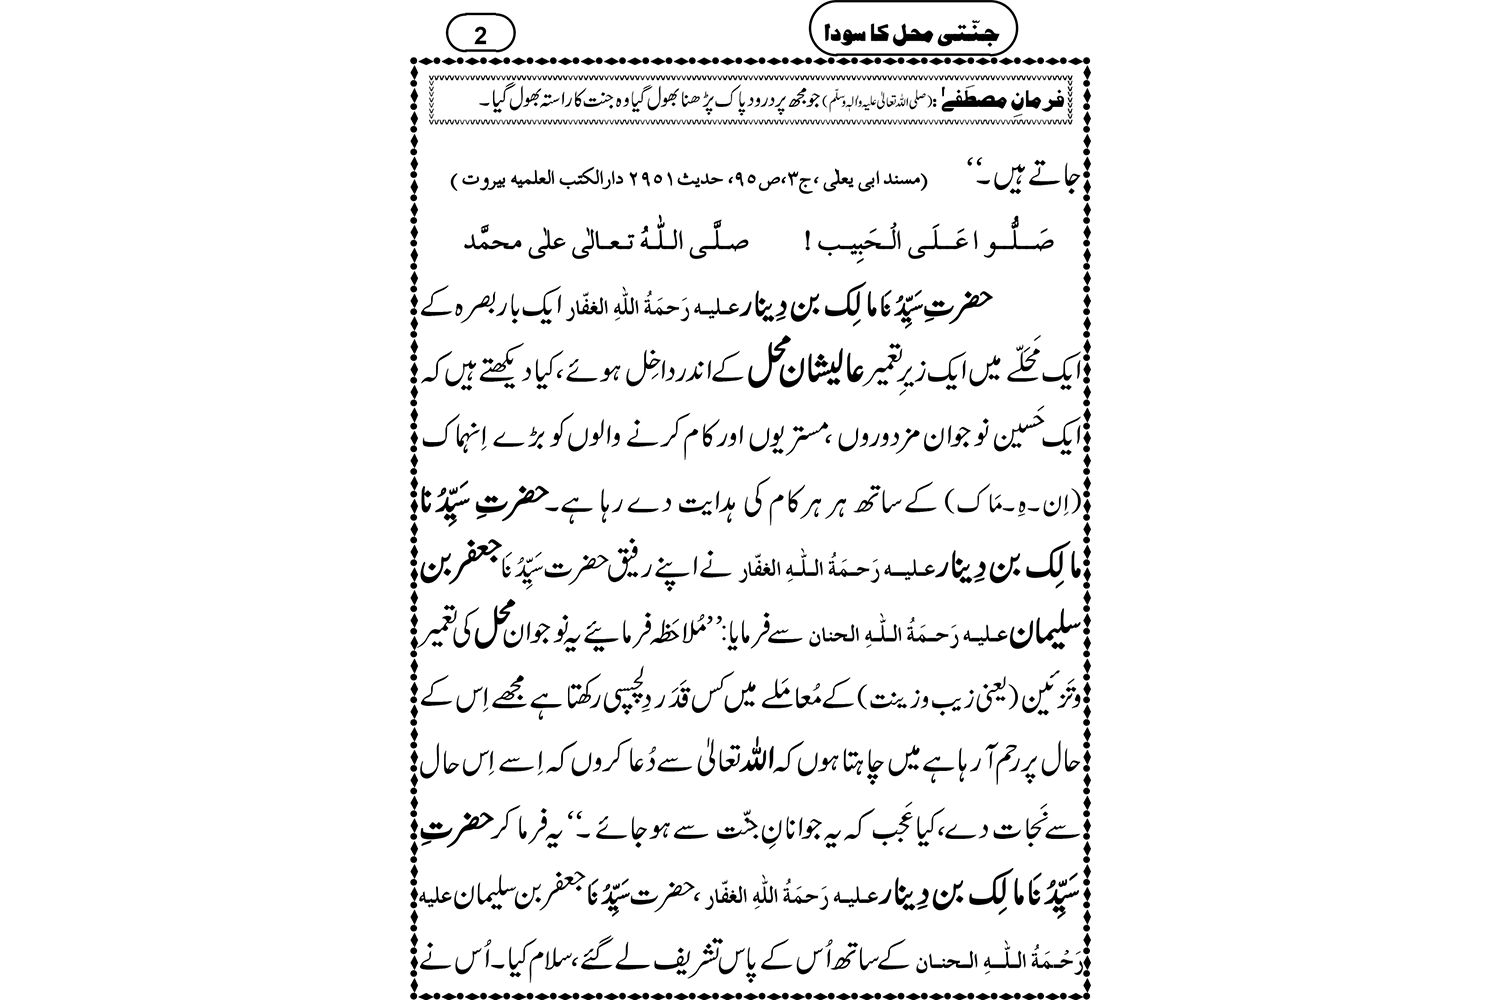 جنّتی محل کا سودا
2
فرمانِ مصطَفےٰ: (صلی اللہ تعالیٰ علیہ واٰلہٖ وسلّم) جو مجھ پر درود پاک پڑھنا بھول گیا وہ جنت کا راستہ بھول گیا۔
جاتے ہیں۔‘‘ (مسند ابی یعلٰی ،ج۳،ص۹۵، حدیث۲۹۵۱ دارالکتب العلمیه بیروت)
صَلُّو ا عَلَی الْحَبِیب ! صلَّی اللّٰہُ تعالٰی علٰی محمَّد
حضرتِ سَیِّدُ نَا مالِک بن دِینار علیه رَحمَةُ اللّٰهِ الغفّار ایک بار بصرہ کے
ایک مَحَلّے میں ایک زیرِ تعمیر عالیشان محل کے اندر داخِل ہوئے، کیا دیکھتے ہیں کہ
ایک حَسین نوجوان مزدوروں ،مستریوں اور کام کرنے والوں کو بڑے اِنہماک
(اِن۔ہِ۔مَاک) کے ساتھ ہر ہر کام کی ہدایت دے رہا ہے۔ حضرتِ سَیِّدُ نا
مالِک بن دِینار علیه رَحمَةُ اللّٰهِ الغفّار نے اپنے رفیق حضرت سَیِّدُ نَا جعفر بن
سلیمان علیه رَحمَةُ اللّٰهِ الحنان سے فرمایا: ’’مُلاحَظہ فرمائیے یہ نوجوان محل کی تعمیر
وتَزئین (یعنی زیب وزینت) کے مُعامَلے میں کس قَدَر دِلچسپی رکھتا ہے مجھے اِس کے
حال پر رحم آ رہا ہے میں چاہتا ہوں کہ اللہ تعالیٰ سے دُعا کروں کہ اِسے اِس حال
سے نَجات دے، کیا عَجَب کہ یہ جوانانِ جنّت سے ہو جائے۔‘‘ یہ فرما کر حضرتِ
سَیِّدُ نَا مالِک بن دِینار علیه رَحمَةُ اللّٰهِ الغفّار، حضرت سَیِّدُ نَا جعفر بن سلیمان علیه
رَحْمَةُ اللّٰهِ الحنان کے ساتھ اُس کے پاس تشریف لے گئے، سلام کیا۔ اُس نے